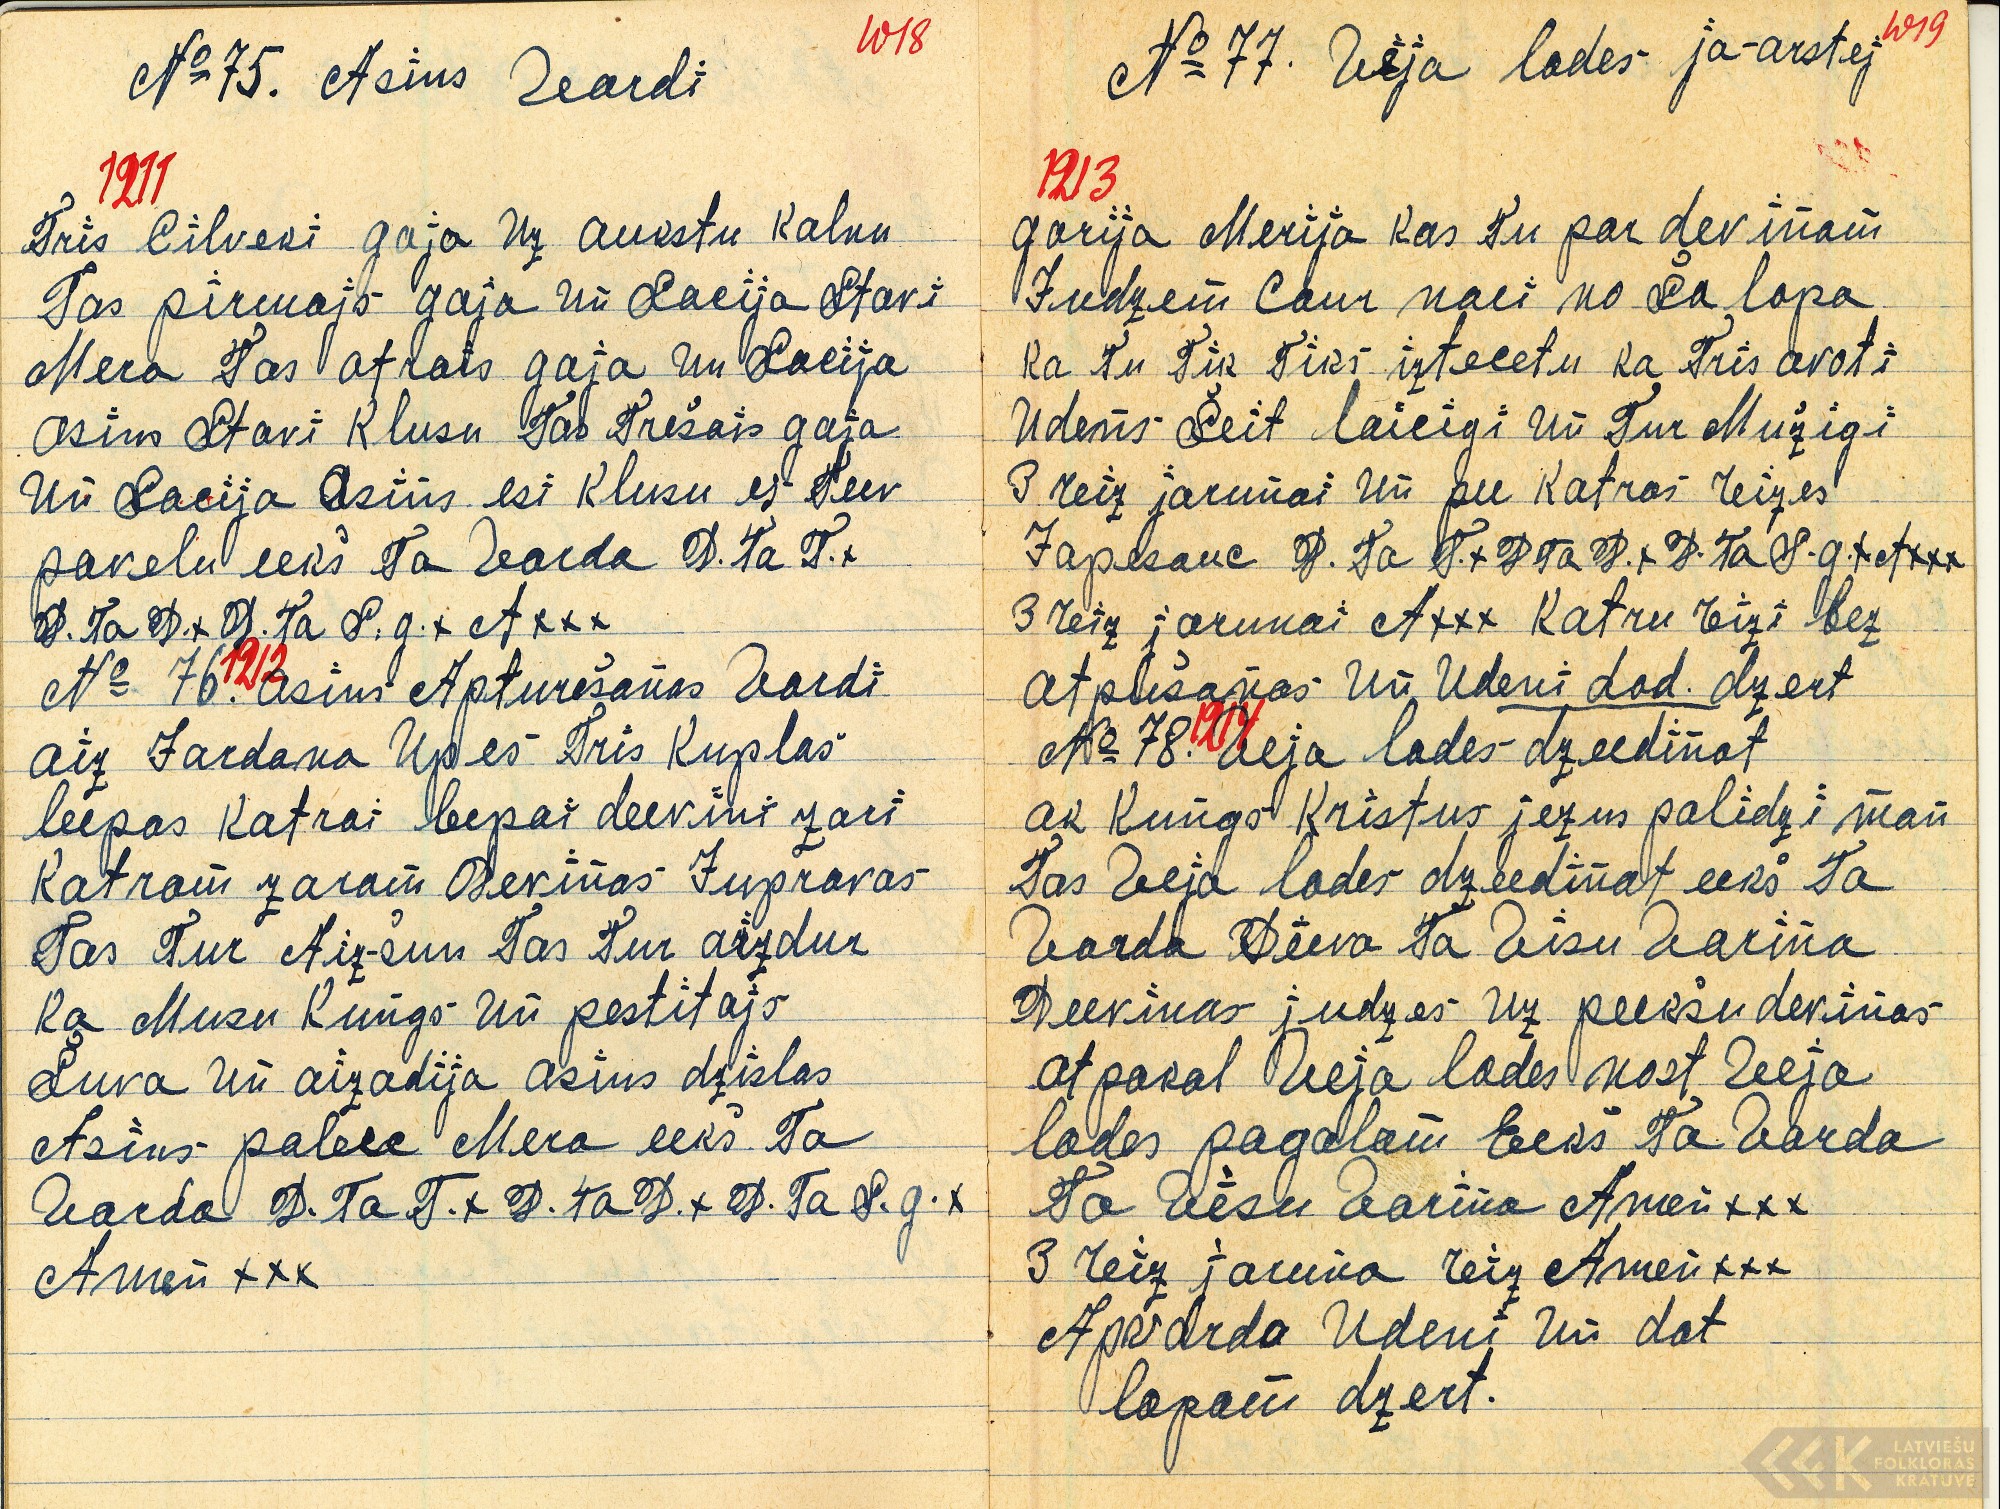 1018
№ 75. Asins Vardi
1211
Tris Cilveki gaja uz aukstu Kalnu
Tas pirmajs gaja un̄ Sacija Stavi
Mera Tas otrais gaja un Sacija
asins Stavi Klusu Tas Trešais gaja
un̄ Sacija Asin̄s esi Klusu es Teev
pavelu eekš Ta Varda D. Ta T. x
D. Ta D. x D. Ta S. g. x A x x x
№ 76. 1212 asins Apturešan̄as Vardi
aiz Jardana Upes Tris Kuplas
leepas Katrai leepai deevini zari
Katram̄ zaram̄ Devin̄as Jupravas
Tas Tur Aiz-šun Tas Tur aizdur
Ka Musu Kun̄gs un̄ pestitajs
Šuva un̄ aizadija asins dzislas
Asins paleec Mera eekš Ta
Varda D. Ta T. x D. Ta D. x D. Ta S. g. x
Amen̄ x x x
1019
№ 77. Veja lodes ja-arstej
1213
garija Merija Kas Tu par devin̄am̄
Judzem̄ Caur naci no Ša lopa
Ka Tu Tik Tiks iztecetu Ka Tris avoti
Uden̄s Šeit laicigi un̄ Tur Mužigi
3 reiz jarun̄ai un̄ pee Katras reizes
Japesauc D. Ta T. x D Ta D. x D. Ta S. g. x A x x x
3 reiz jarunai A x x x Katru reizi bez
atpušan̄as un̄ Udeni dod. dzert
№ 78. 1214 Veja lodes dzeedin̄at
ak Kun̄gs Kristus jezus palidzi m̄an̄
Tas Veja lodes dzeedin̄at eekš Ta
Varda Deeva Ta Visu Varin̄a
Deevinas judzes uz preekšu devin̄as
atpakal Veja lodes nost Veeja
lodes pagalam̄ Eekš Ta Varda
Ta Visu Varin̄a Amen̄ x x x
3 reiz jarun̄a reiz Amen̄ x x x
Apvarda Udeni un̄ dot
lopam̄ dzert.
LATVIEŠU
FOLKLORAS
KRATUVE